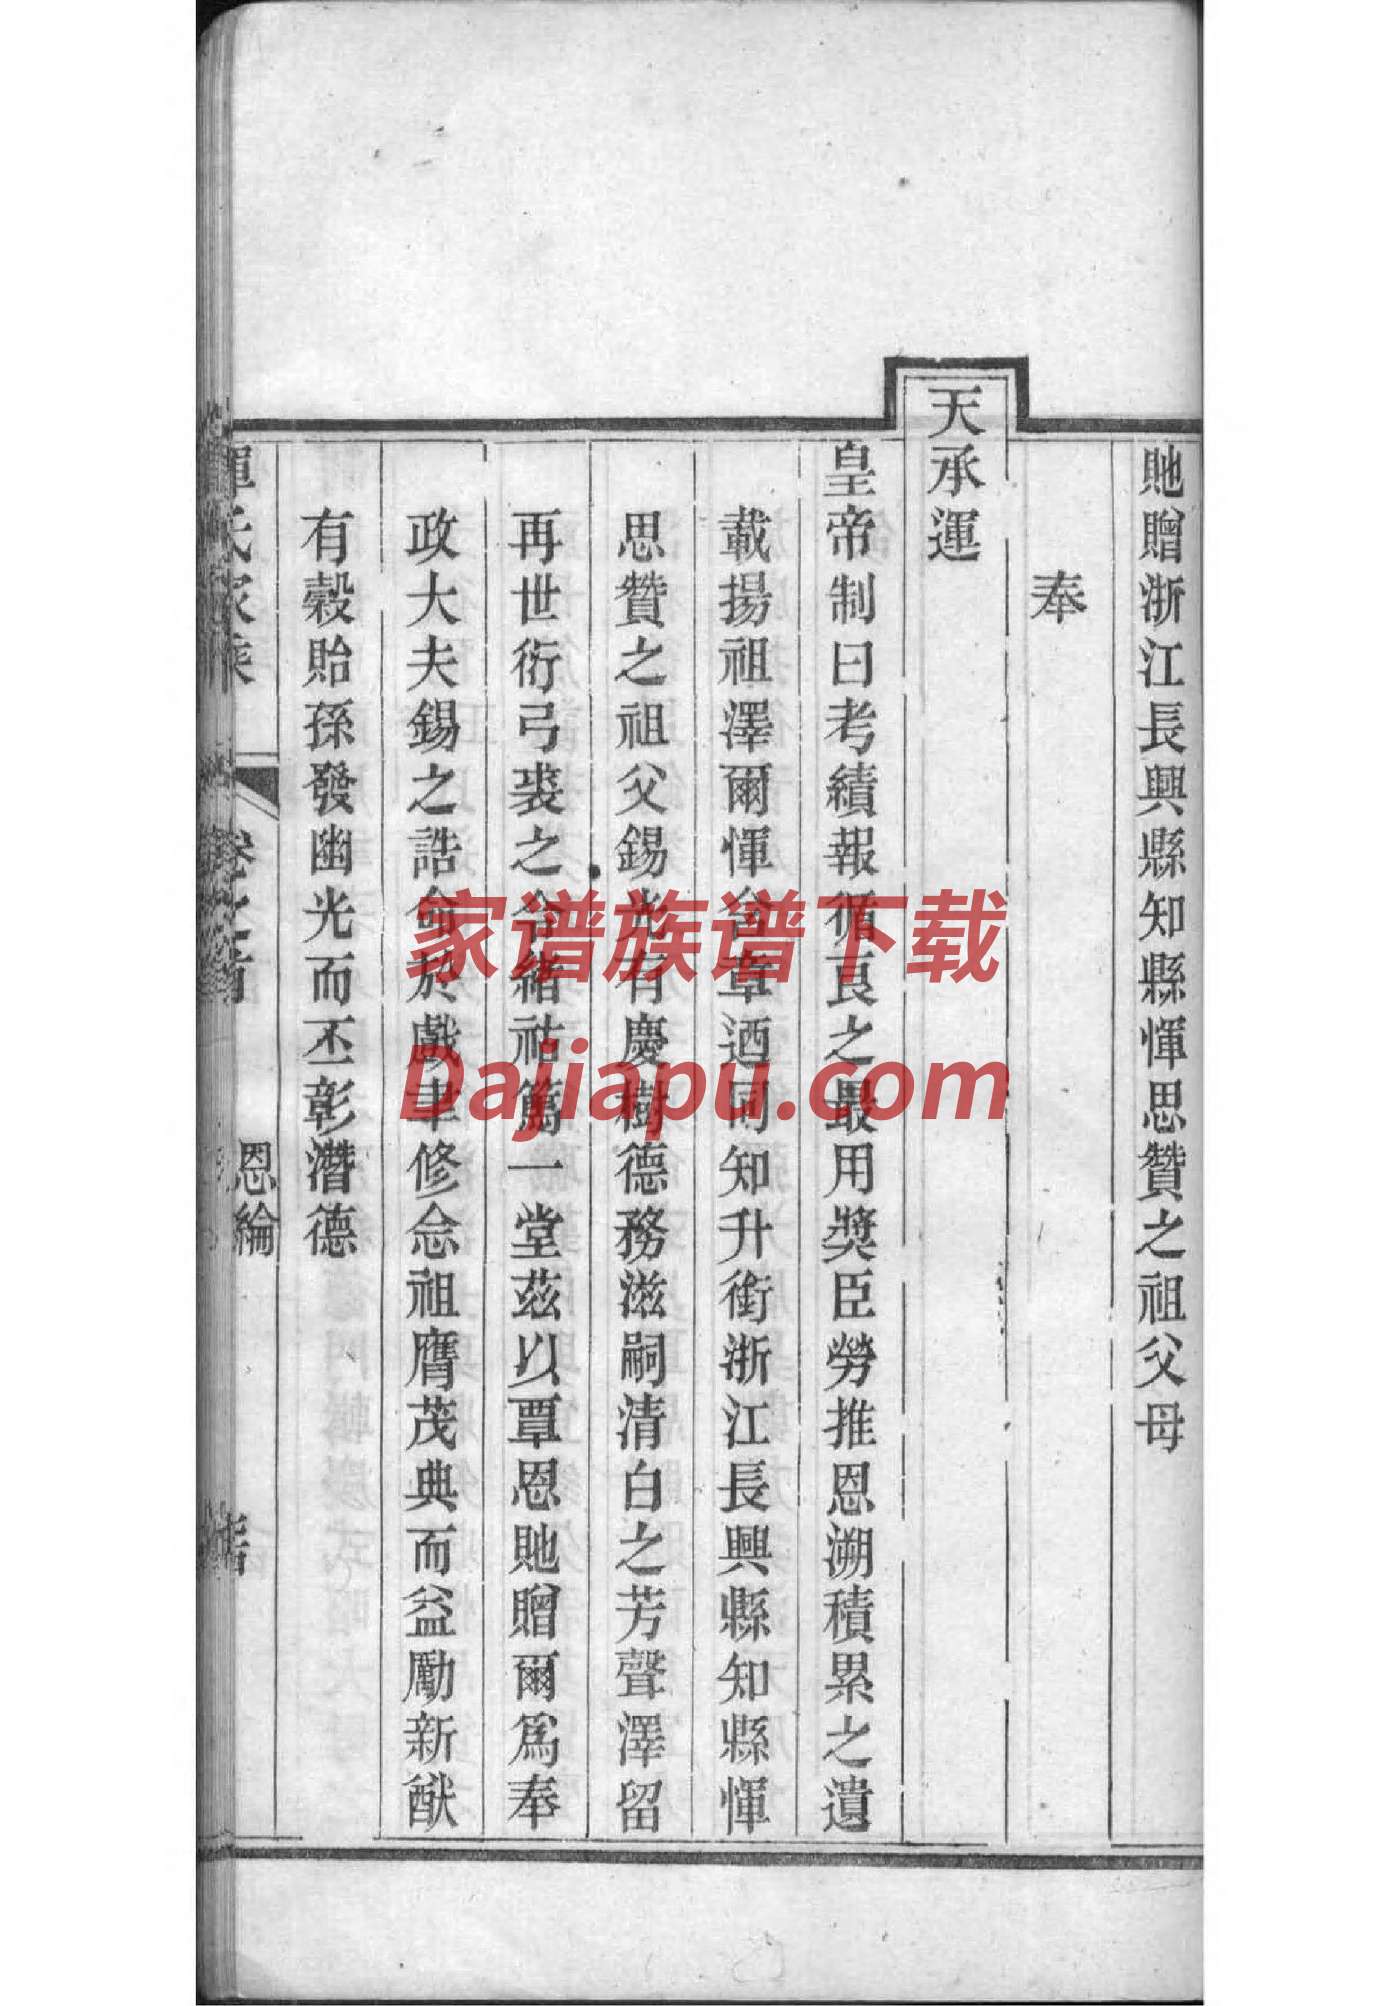 貤贈浙江長興縣知縣惲思贊之祖父母
奉
天承運
皇帝制曰考績報循良之最用獎臣勞推恩溯積累之遺
載揚祖澤爾惲台章迺同知升銜浙江長興縣知縣惲
思贊之祖父錫光有慶樹德務滋嗣清白之芳聲澤留
再世衍弓裘之令緒祜篤一堂茲以覃恩貤贈爾爲奉
政大夫錫之誥命於戲聿修念祖膺茂典而益勵新猷
有穀貽孫發幽光而丕彰潛德
惲氏家乘
卷之首
恩綸
家谱族谱下载
Dajiapu.com